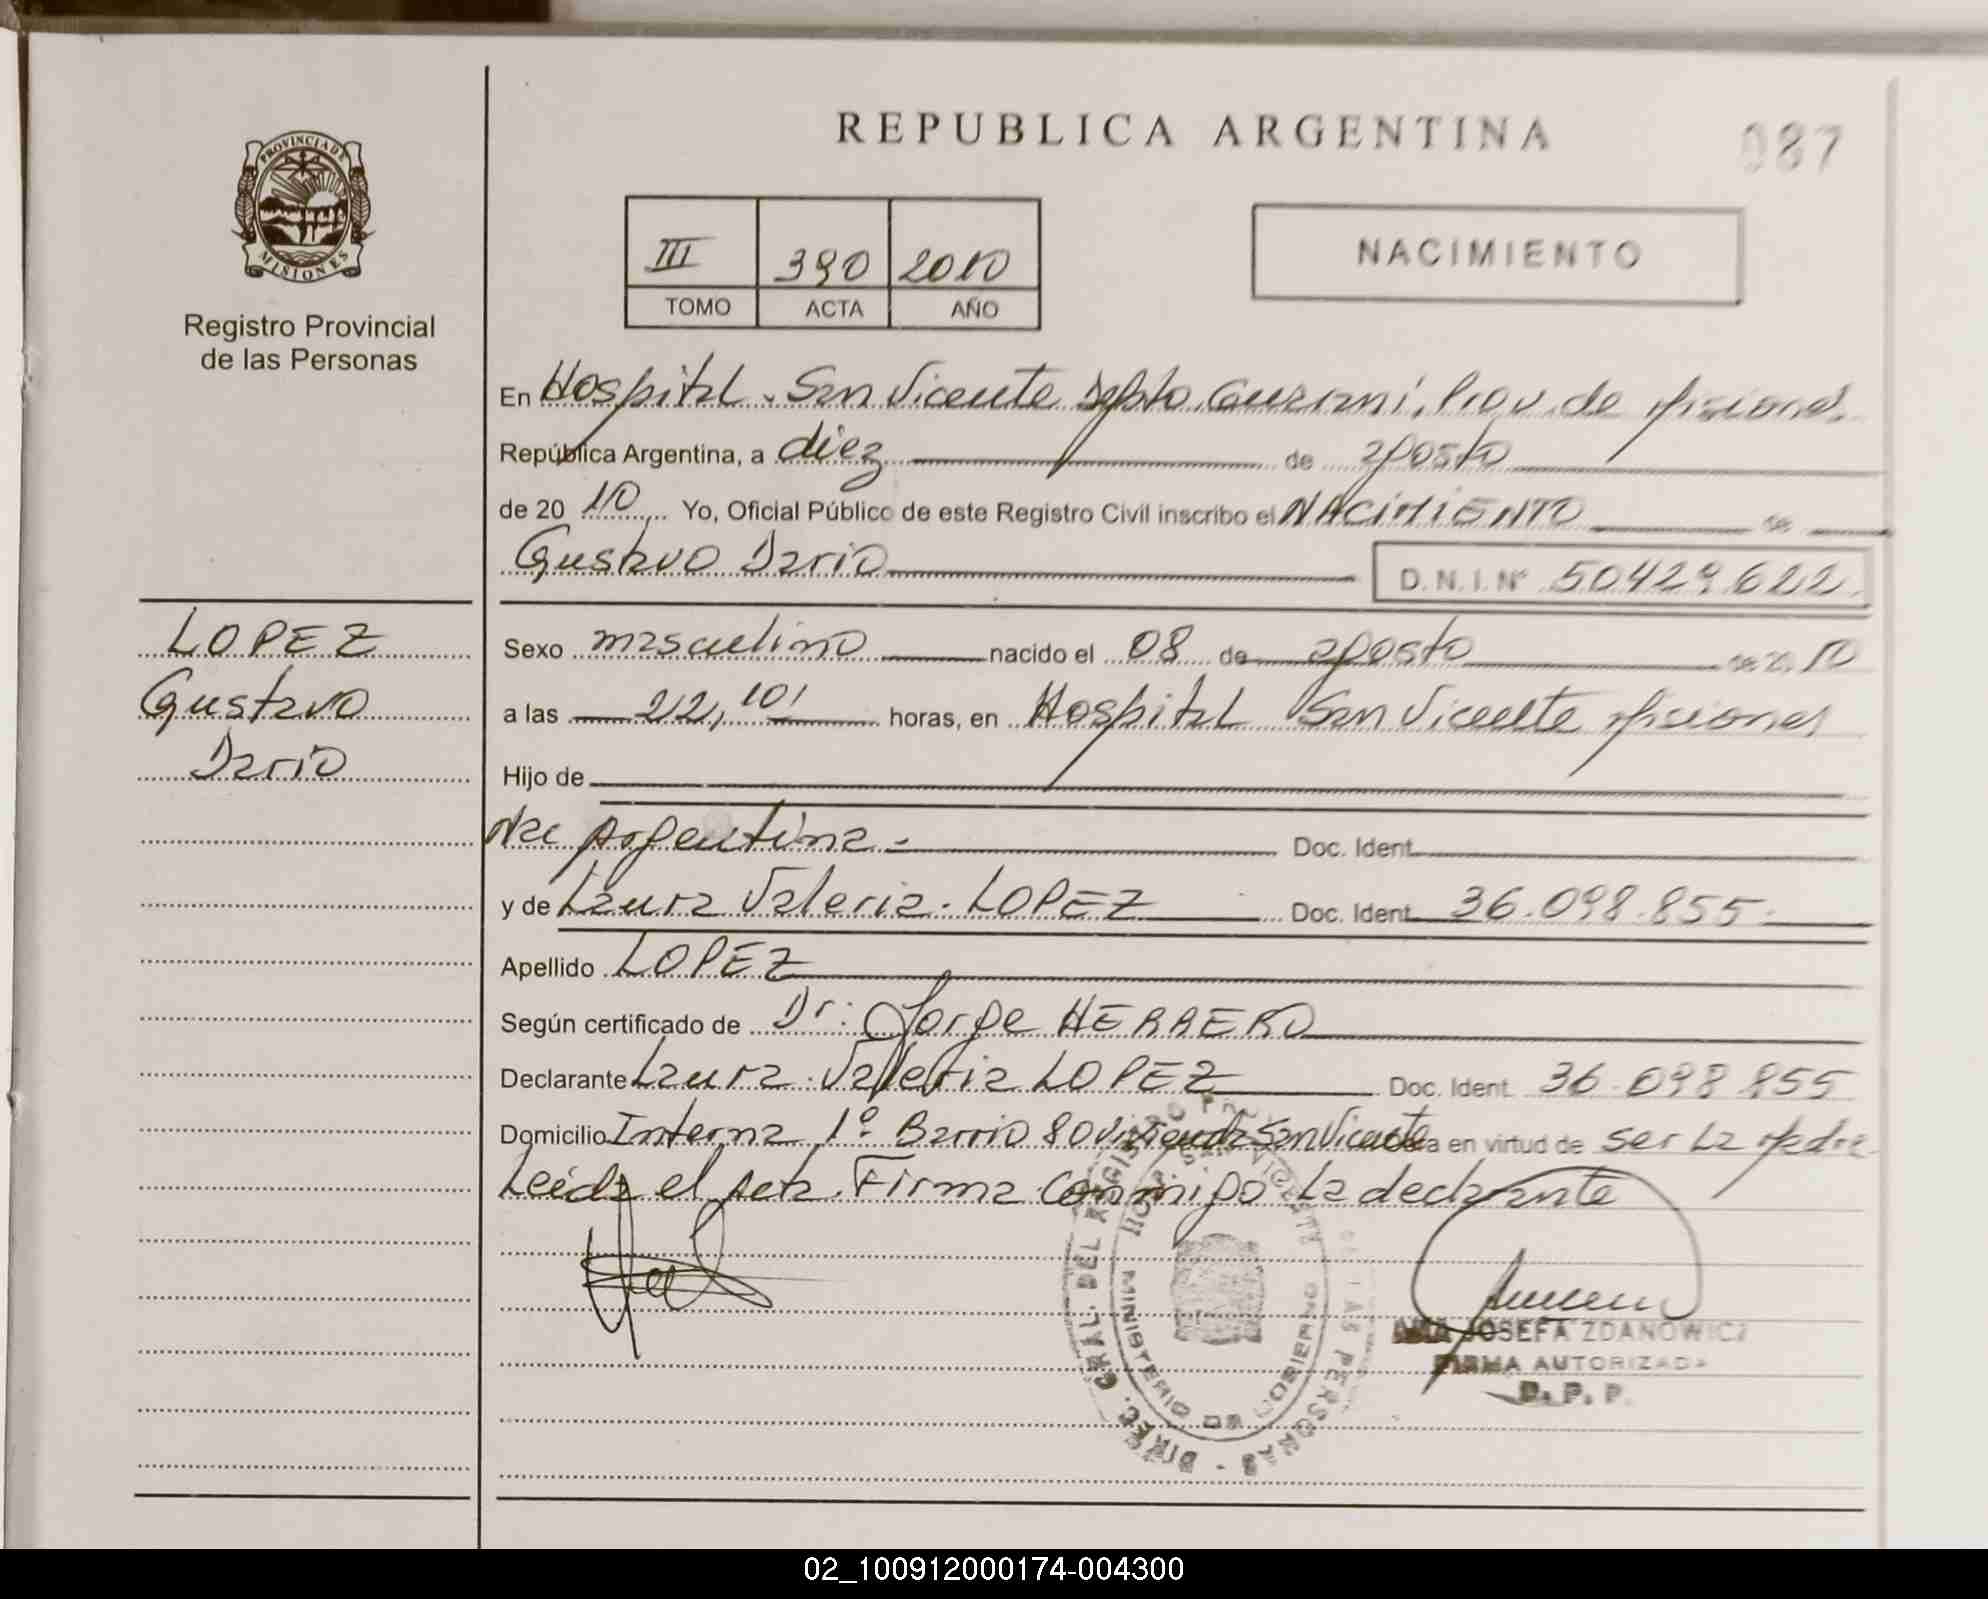 REPUBLICA ARGENTINA
087
PROVINCIA DE
MISIONES
Registro Provincial
de las Personas
III 390 2010
TOMO ACTA AÑO
NACIMIENTO
En Hospital - San Vicente Depto. Guarani, Prov. de Misiones.
República Argentina, a diez de agosto
de 20 10 Yo, Oficial Público de este Registro Civil inscribo el NACIMIENTO de
Gustavo Dario D.N.I. N° 50429622
LOPEZ
Gustavo
Dario
Sexo masculino nacido el 08 de agosto de 20 10
a las 22,10' horas, en Hospital San Vicente Misiones
Hijo de
Nac Argentina - Doc. Ident.
y de Laura Valeria - LOPEZ Doc. Ident. 36.098.855-
Apellido LOPEZ
Según certificado de Dr: Jorge HERRERO
Declarante Laura Valeria LOPEZ Doc. Ident. 36.098.855
Domicilio Interna 1° Barrio 80 vivienda San Vicente en virtud de ser La Madre
Leída el Acta. Firma conmigo La declarante
DIREC. GRAL. DEL REGISTRO PERSONAS
MINISTERIO DE GOBIERNO
ANA JOSEFA ZDANOWICZ
FIRMA AUTORIZADA
R. P. P.
02_100912000174-004300